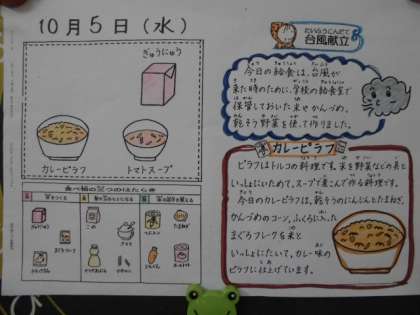 10月5日(水)
ぎゅうにゅう
カレーピラフ
トマトスープ
食べ物の三つのはたらき
たいふうこんだて
台風献立
今日の給食は、台風が
来た時のために、学校の給食室で
保管しておいた米やかんづめ、
乾そう野菜を使って作りました。
カレーピラフ
ピラフはトルコの料理です。米を野菜などの具と
いっしょにいためて、スープで煮こんで作る料理です。
今日のカレーピラフは、乾そうのにんじんとたまねぎ、
かんづめのコーン、ふくろに入った
まぐろフレークを米と
いっしょにたいて、カレー味の
ピラフに仕上げています。